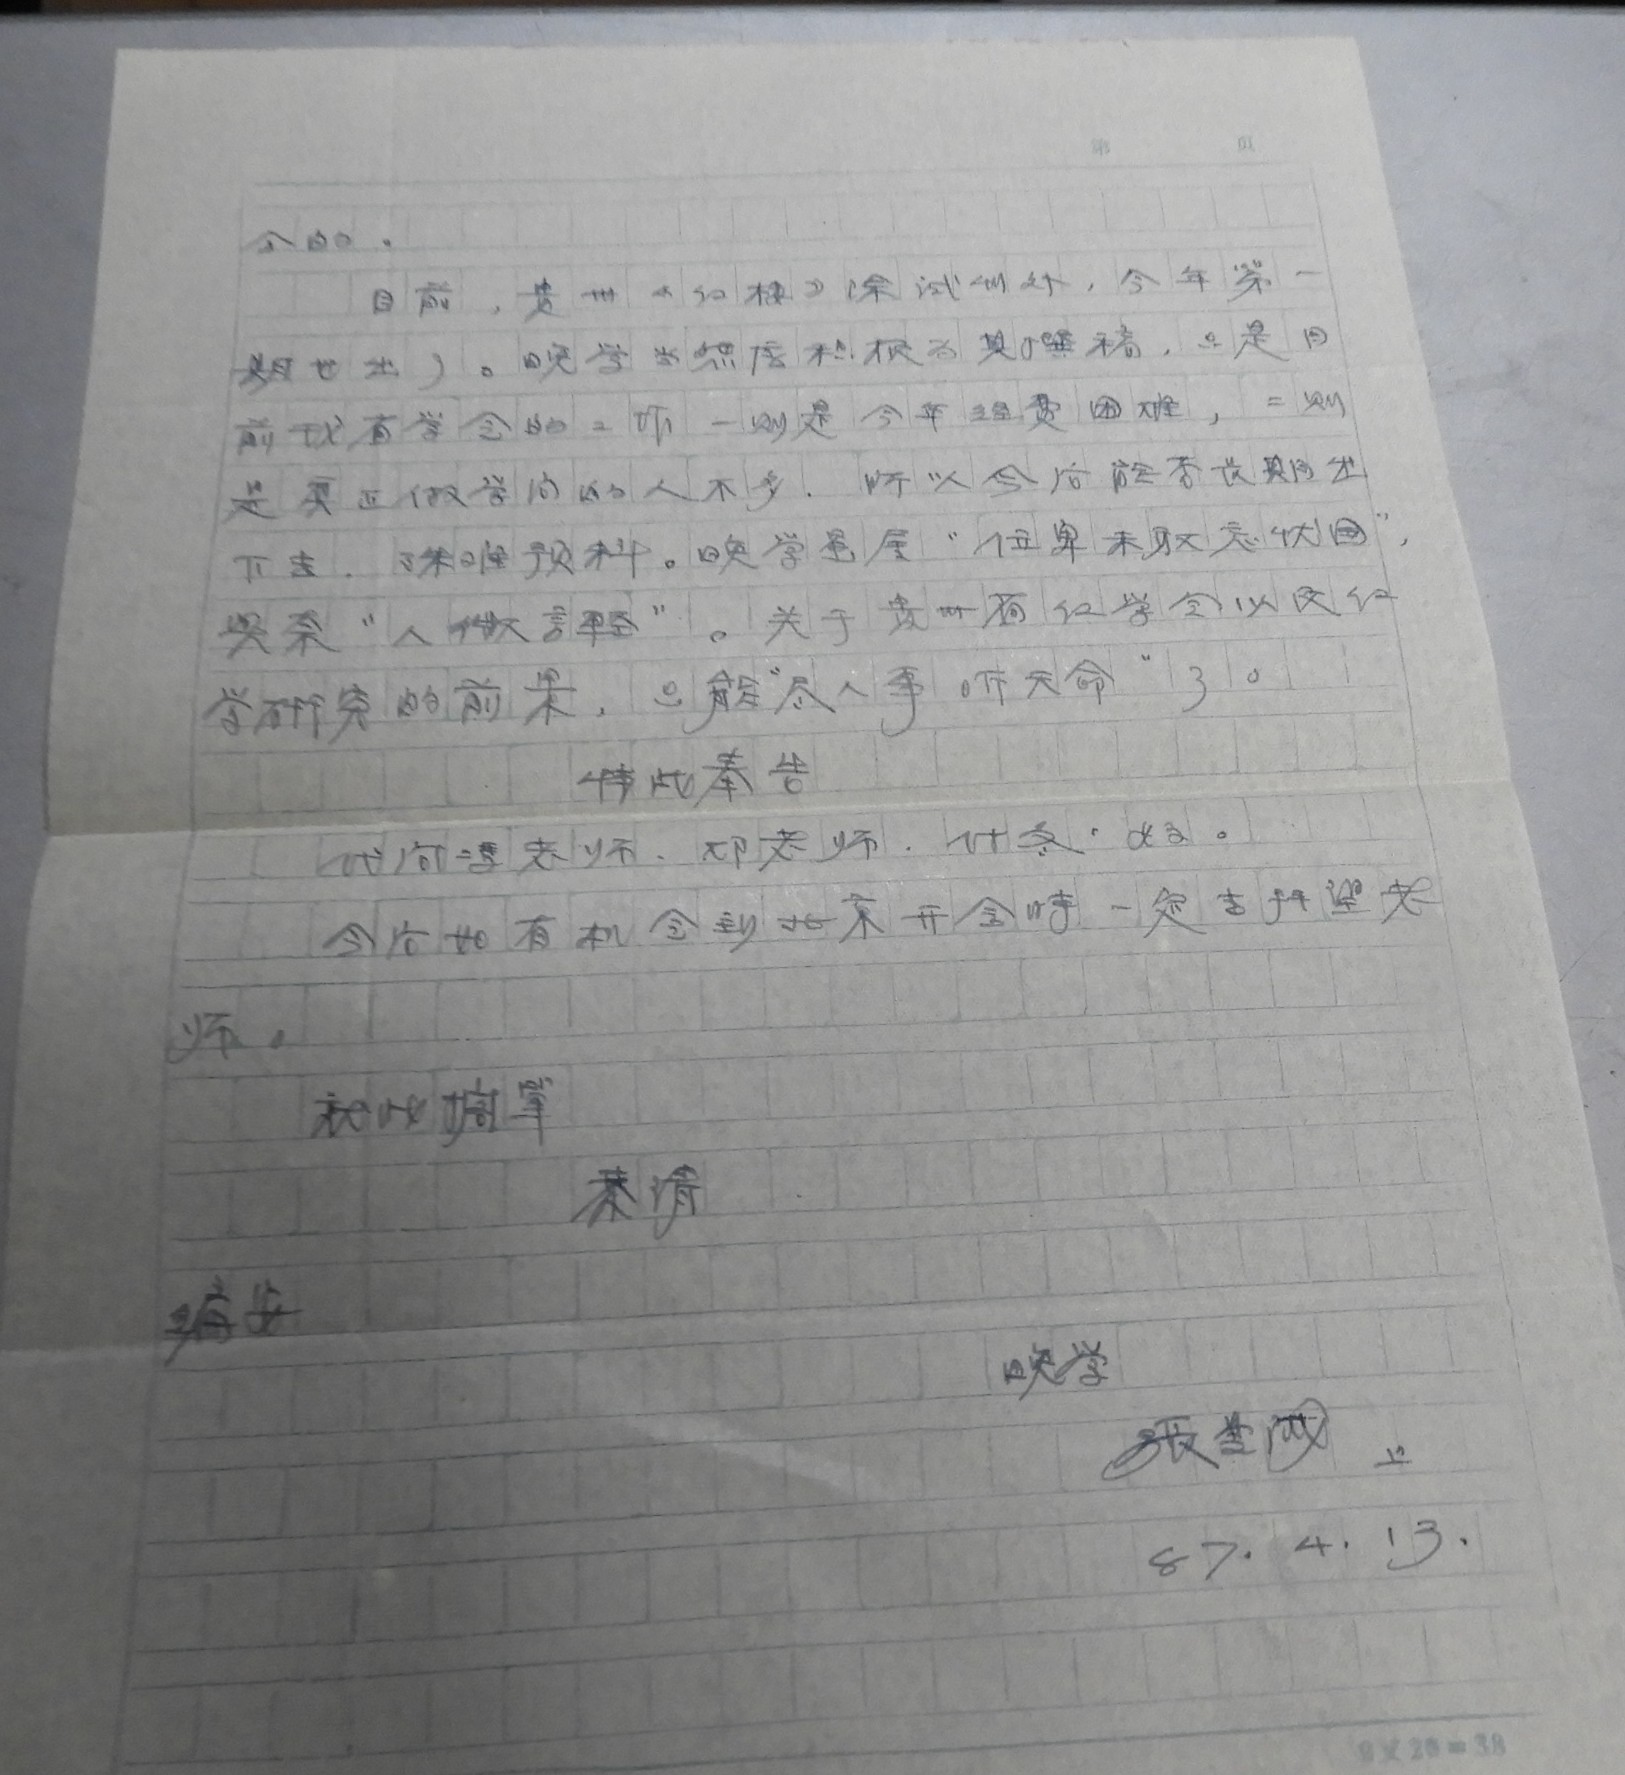 第 页
介的。
目前，贵州《红楼》除试刊外，今年第一
期也出了。晚学当然应积极为其 稿，只是目
前我省学会的工作一则是今年经费困难，二则
是真正做学问的人不多．所以今后能否长期出
下去．殊难预料。晚学虽属“位卑未敢忘忧国”，
奈“人微言轻”。关于贵州省红学会以及红
学研究的前景，只能“尽人事听天命”了。
特此奉告
代问 老师．邓老师． 好。
今后如有机会到北京开会时一定去拜望老
师。
祝此搁笔
恭请
编安
晚学
张 上
87. 4. 13.